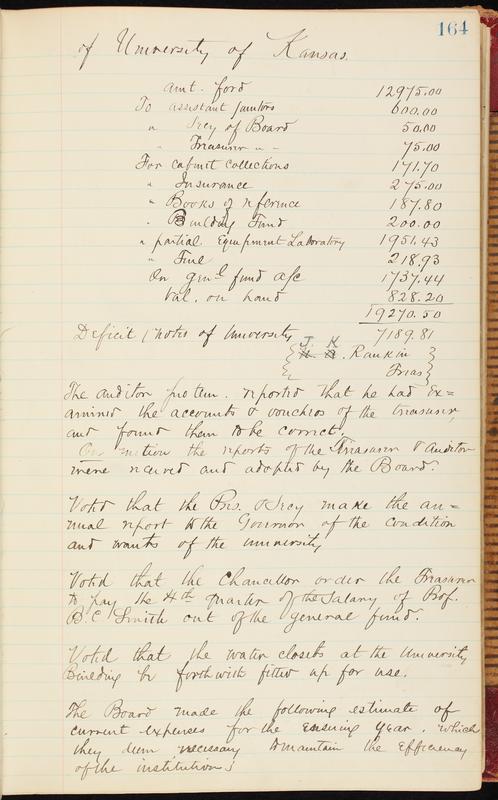 164
of University of Kansas.
amt. ford 12975.00
To assistant janitors 600.00
" Secy of Board 50.00
" Treasurer " " 75.00
For cabinet collections 171.70
" Insurance 275.00
" Books of reference 187.80
" Building Fund 200.00
" partial Equipment Laboratory 1951.43
" Fuel 218.93
On genl fund a/c 1737.44
Val. on hand 828.20
19270.50
Deficit (notes of University 7189.81
J. K. Rankin
Treas
The auditor protem. reported that he had ex=
amined the accounts & vouchers of the treasurer,
and found them to be correct.
On motion the reports of the Treasurer & Auditor
were received and adopted by the Board.
Voted that the Pres. & Secy make the an=
nual report to the Governor of the condition
and wants of the university
Voted that the Chancellor order the Treasurer
to pay the 4th quarter of the salary of Prof.
B. C. Smith out of the general fund.
Voted that the water closets at the University
Building be forthwith fitted up for use.
The Board made the following estimate of
current expenses for the ensuing year, which
they deem necessary to maintain the efficiency
of the institution;